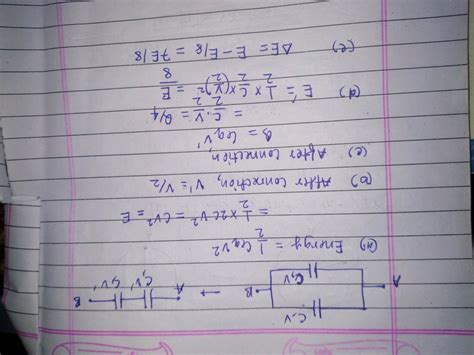 C,V
A C,V B → A C,V' C,V' B
(a) Energy = 1/2 Ceq V²
= 1/2 × 2CV² = CV² = E
(b) After connection, V' = V/2
(c) After connection,
Q = Ceq V'
= C/2 . V/2 = Q/4
(d) E' = 1/2 × C/2 × (V/2)² = E/8
(e) ΔE = E - E/8 = 7E/8